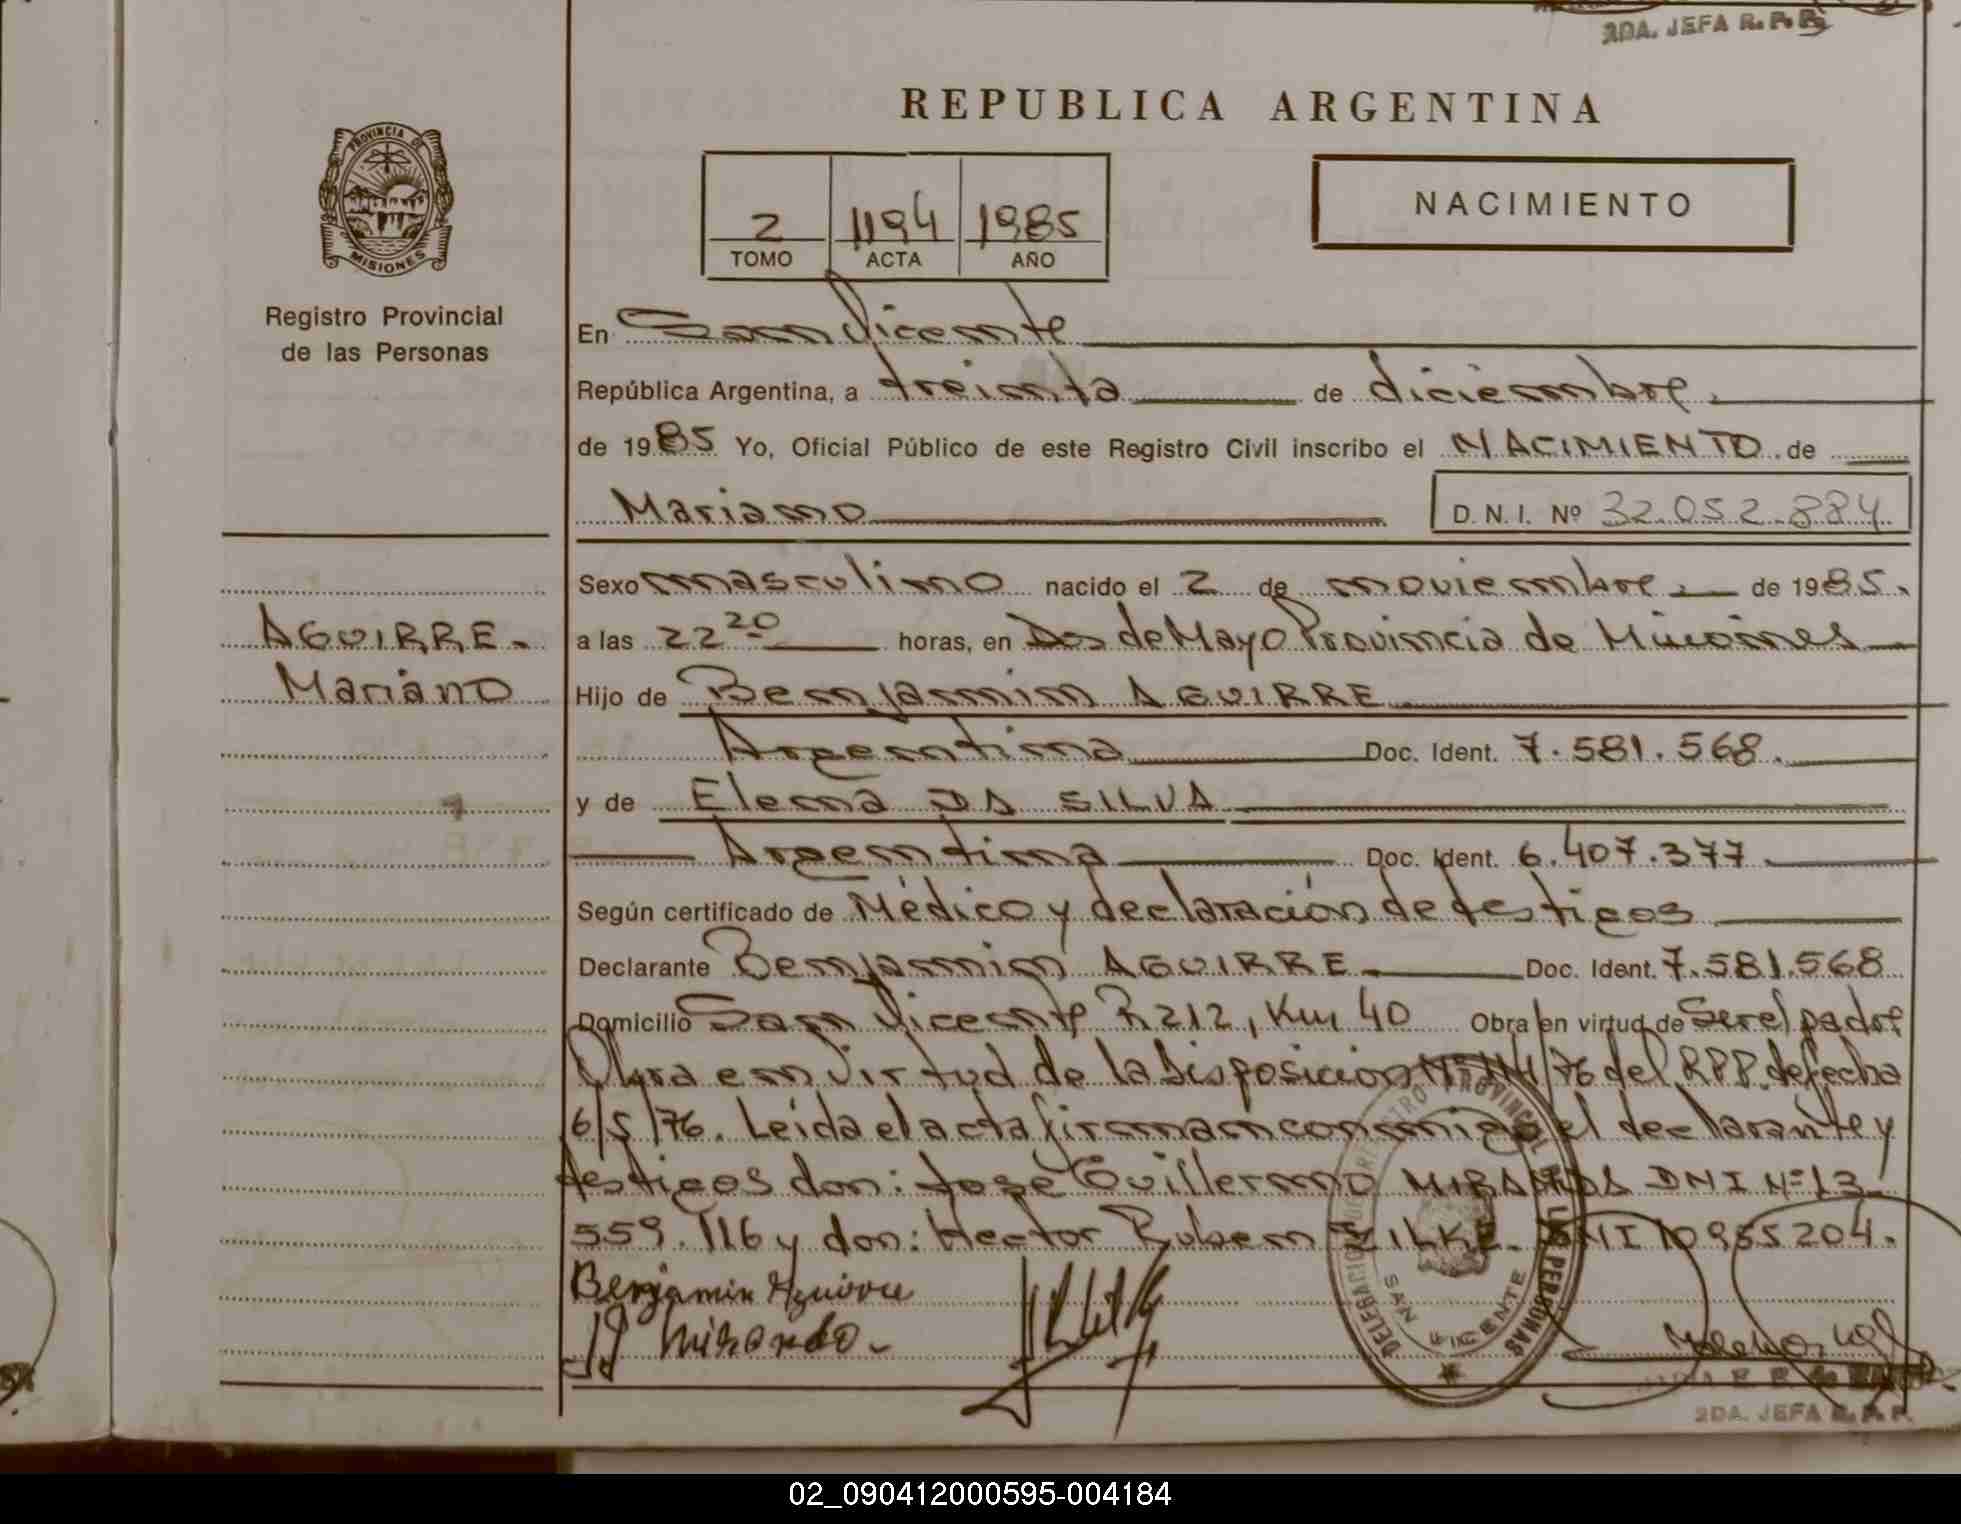 2DA. JEFA R. P. P.
REPUBLICA ARGENTINA
PROVINCIA DE
MISIONES
Registro Provincial
de las Personas
2 1194 1985
TOMO ACTA AÑO
NACIMIENTO
En San Vicente
República Argentina, a treinta de diciembre.
de 1985 Yo, Oficial Público de este Registro Civil inscribo el NACIMIENTO de
Mariano D. N. I. Nº 32.052.884
Sexo masculino nacido el 2 de noviembre. de 1985.
AGUIRRE.
Mariano
a las 22 20 horas, en Dos de Mayo Provincia de Misiones
Hijo de Benjamin AGUIRRE
Argentina Doc. Ident. 7.581.568.
y de Elena DA SILVA
Argentina Doc. Ident. 6.407.377.
Según certificado de Médico y declaración de testigos
Declarante Benjamin AGUIRRE Doc. Ident. 7.581.568
Domicilio San Vicente R 212, Km 40 Obra en virtud de Ser el padre
Obra en virtud de la Disposicion Nº /76 del RPP. de fecha
6/5/76. Leída el acta firman conmigo el declarante y
testigos don: José Guillermo MIRANDA DNI Nº 13
559.116 y don: Hector Ruben ZILKE. DNI 10955204.
Benjamin Aguirre
JG Miranda.
DELEGACION REGISTRO PROVINCIAL DE LAS PERSONAS
SAN VICENTE
2DA. JEFA R. P. P.
02_090412000595-004184